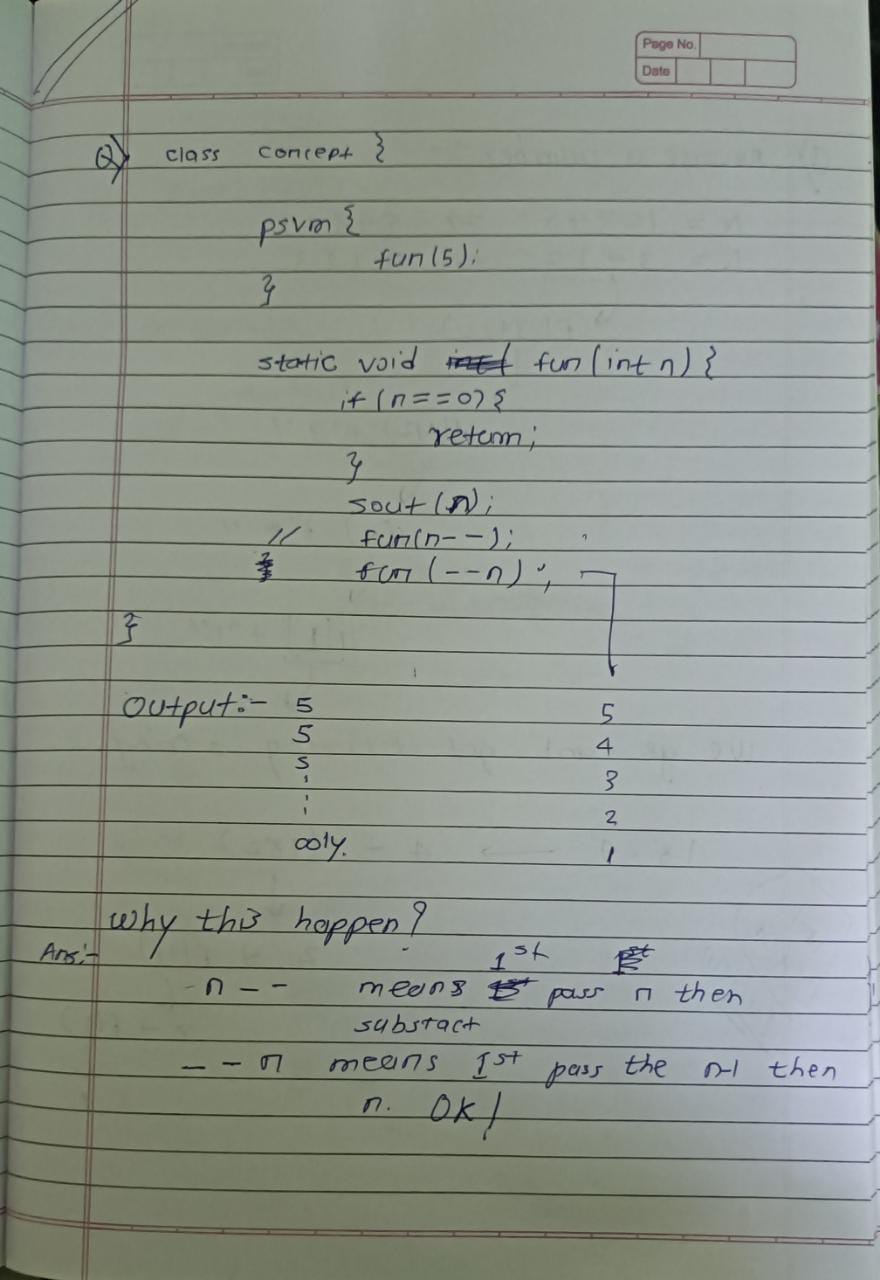 Page No.
Date
Q) class concept {
psvm {
fun(5);
}
static void fun(int n) {
if (n==0) {
return;
}
sout(n);
// fun(n--);
fun(--n);
}
Output:- 5 5
5 4
5 3
⋮ 2
∞ly. 1
Why this happen?
Ans:- 1st
n-- means pass n then
substact
--n means 1st pass the n-1 then
n. OK!